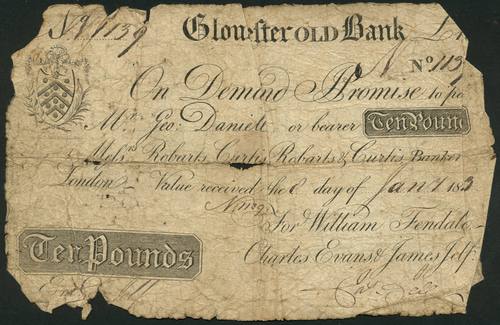 No 1139
Gloucester OLD Bank
No 113
On Demand I Promise to pa
Mr. Geo: Daniell or bearer Ten Poun
Messrs Robarts Curtis Robarts & Curtis, Banker
London Value received the 6 day of Jany 18
No 1139
For William Fendall
Charles Evans & James Jelf
Ten Pounds